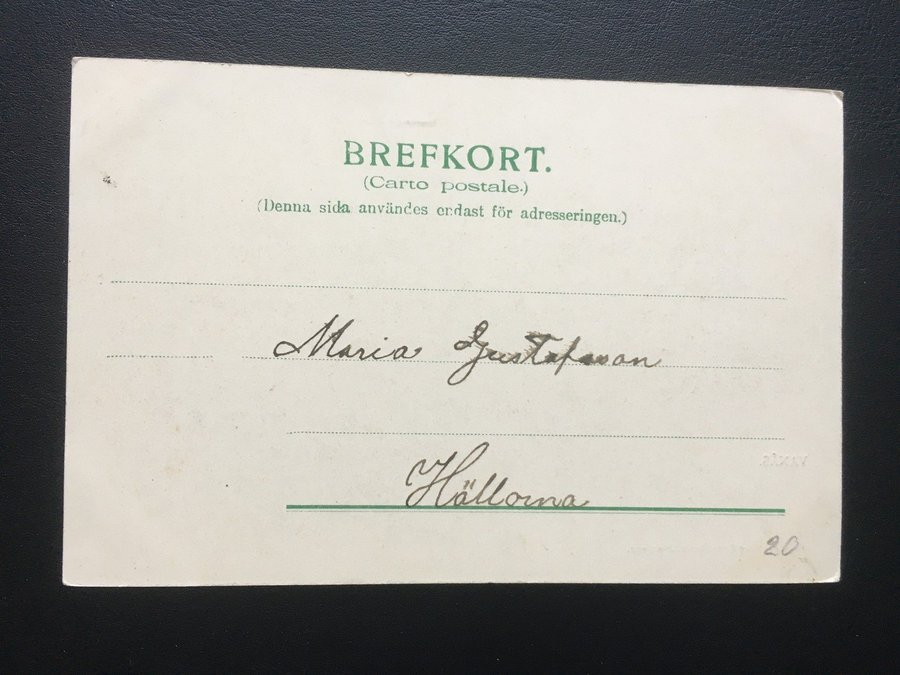 BREFKORT.
(Carte postale.)
(Denna sida användes endast för adresseringen.)
Maria Gustafsson
Hällorna
20